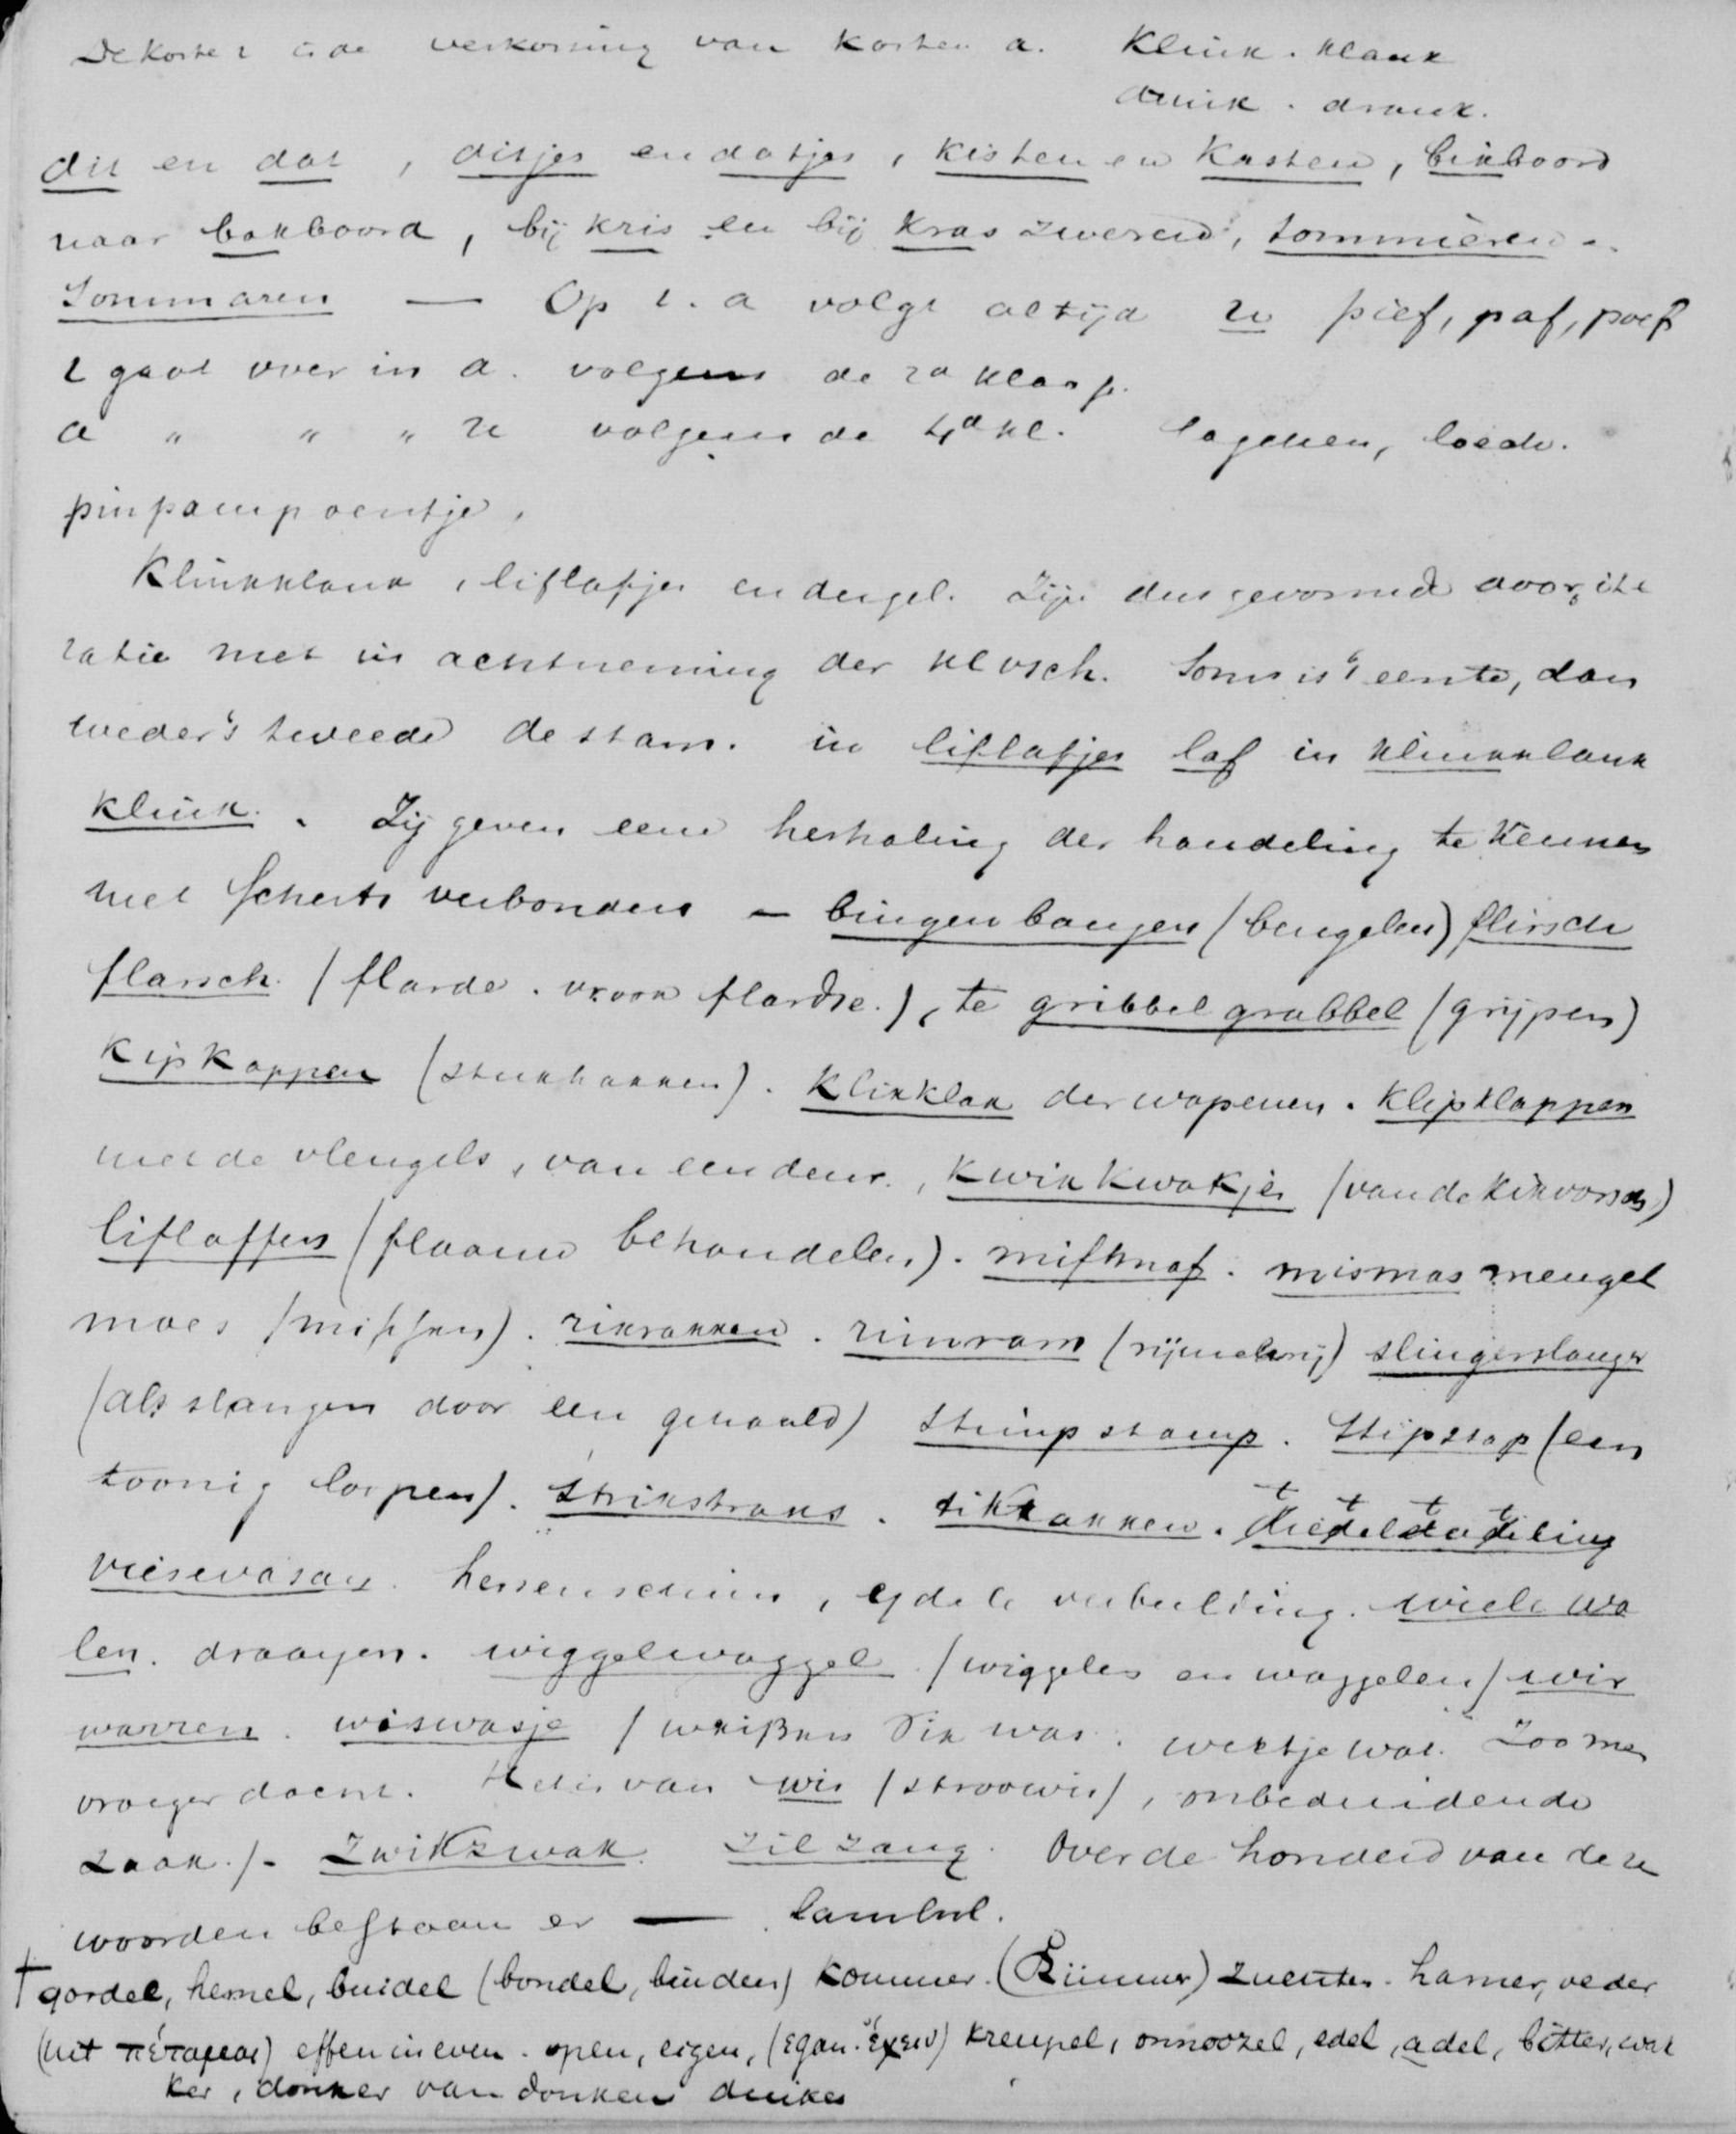 De korte i is de verkorting van korten a. Klink. klank
drink. drank.
dit en dat, ditjes en datjes, kisten en kasten, bikboord
naar bakboord, bij kris en bij kras zweren, tommieren
Tommaren — Op i. a volgt altijd u pief, paf, poef
i gaat over in a. volgens de klasse.
a " " " u volgens de 4d kl. lagchen, loech.
pinpampoentje,
Klinkklank, liflafjes en dergel. Zijn dus gevormd door ite
ratie met in achtneming der kl. Soms is 't eerste, dan
weder 't tweede de stam. in liflafjes laf in klinkklank
klink. Zij geven eene herhaling der handeling te kennen
met scherts verbonden — bingenbangen (bengelen) flirsch
flarsch (flarde. flardse.), te gribbel grabbel (grijpen)
Kipkappen (stukhakken). Klikklak der wapenen. Klipklappen
met de vleugels, van een deur, Kwikkwakjes (van de kikvorsch)
liflaffen (flaauw behandelen). mifmaf. mismas mengel
moes (missen). rikrakken. rimram (rijmelarij) slingerslanger
(als slangen door een gehaald) stimpstamp. Stipstap (een
toonig loopen). Strikstraks. tiktakken.
viesevasen. hersenschim, ydele verbeelding. wiele wa
len. draayen. wiggelwaggel (wiggelen en waggelen) wir
warren. wiswasje (weißen Sie was. weetje wat. Zoo men
vroeger docent. Het is van wis (stroowis), onbeduidende
zaak.). Zwikzwak. Zilzang. Over de honderd van deze
woorden bestaan er —
† gordel, hemel, buidel (bondel, binden) kommer. hamer, veder
(uit πέταμαι) effen in even. open, eigen, (egan. ἔχειν) kreupel, onnoozel, edel, adel, bitter, wak
ker, donker van donken duiken